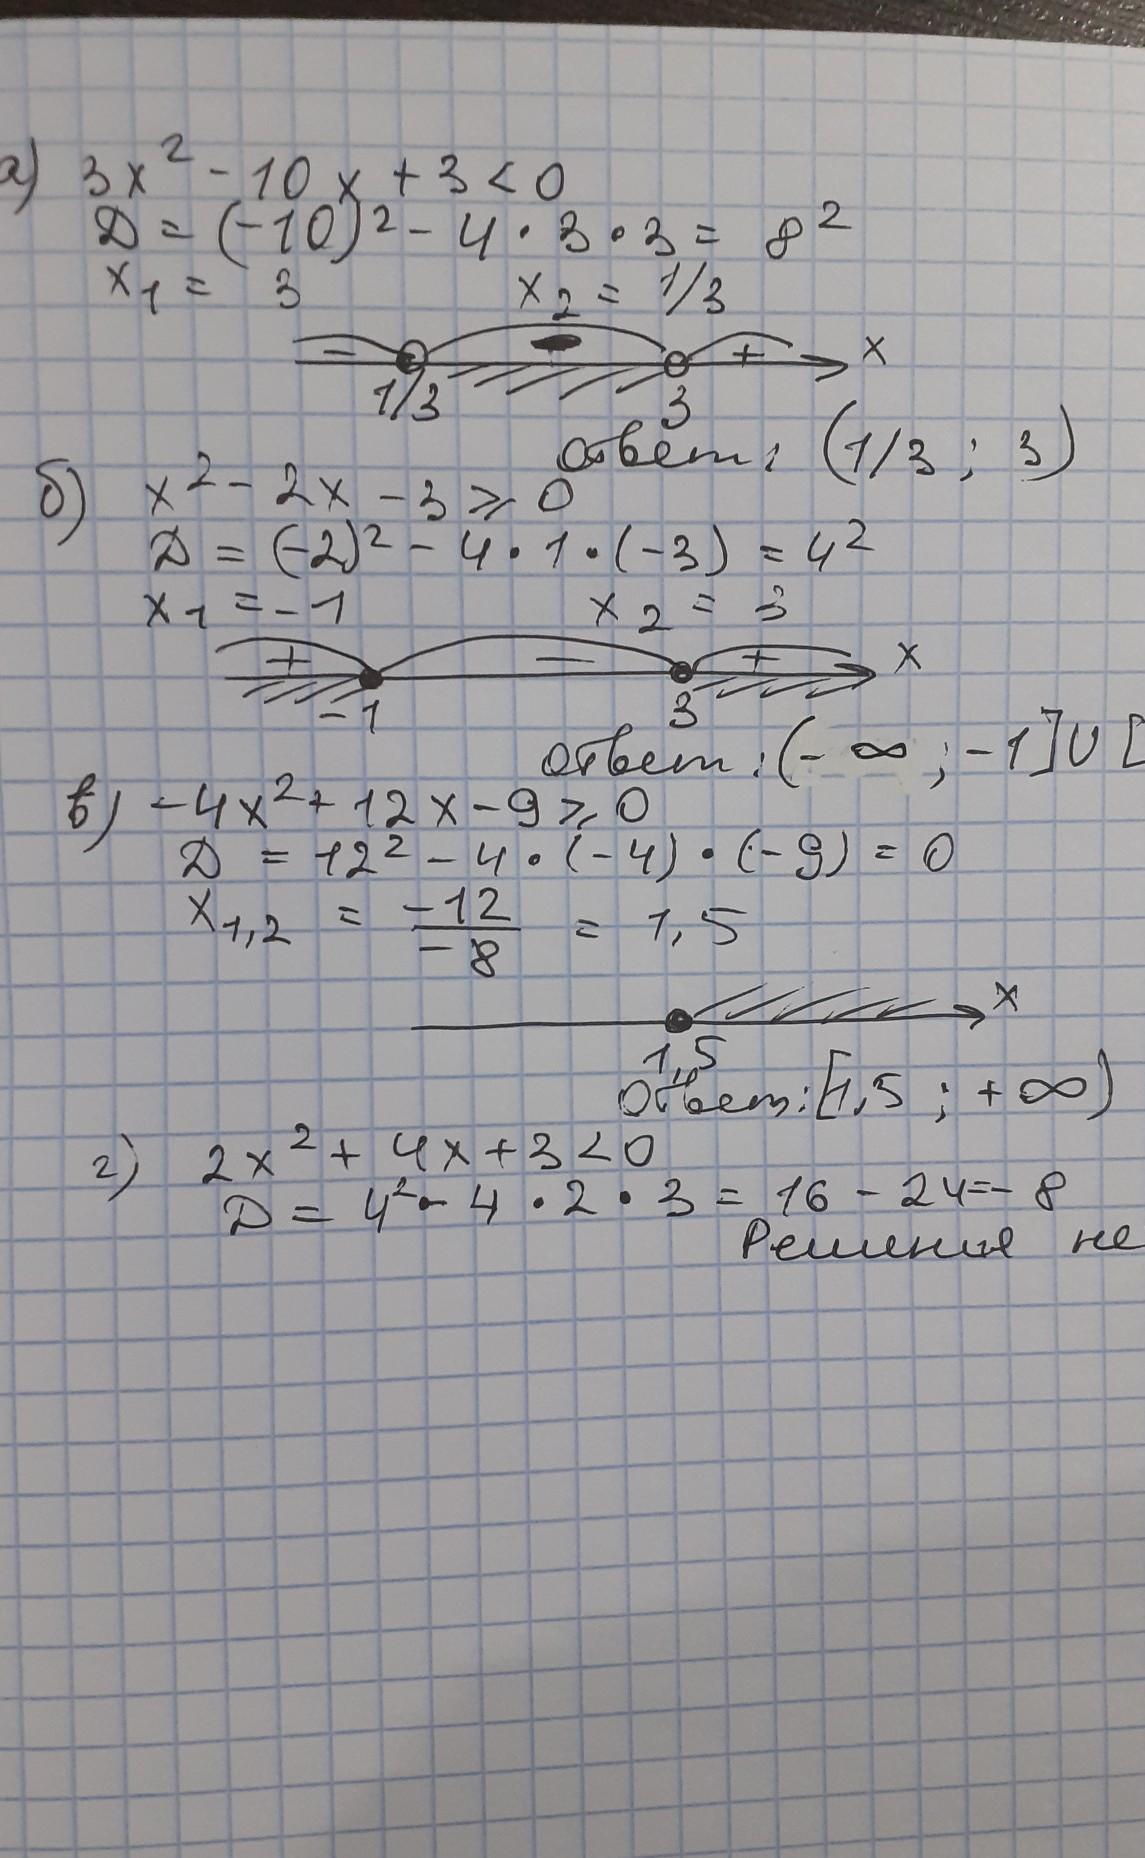 а) 3x² - 10x + 3 < 0
D = (-10)² - 4 · 3 · 3 = 8²
x₁ = 3 x₂ = 1/3
- - + x
1/3 3
ответ: (1/3 ; 3)
б) x² - 2x - 3 ⩾ 0
D = (-2)² - 4 · 1 · (-3) = 4²
x₁ = -1 x₂ = 3
+ - + x
-1 3
ответ: (-∞ ; -1]∪[
в) -4x² + 12x - 9 ⩾ 0
D = 12² - 4 · (-4) · (-9) = 0
x₁,₂ = -12/-8 = 1,5
x
1,5
Ответ: [1,5 ; +∞)
г) 2x² + 4x + 3 < 0
D = 4² - 4 · 2 · 3 = 16 - 24 = - 8
Решения не